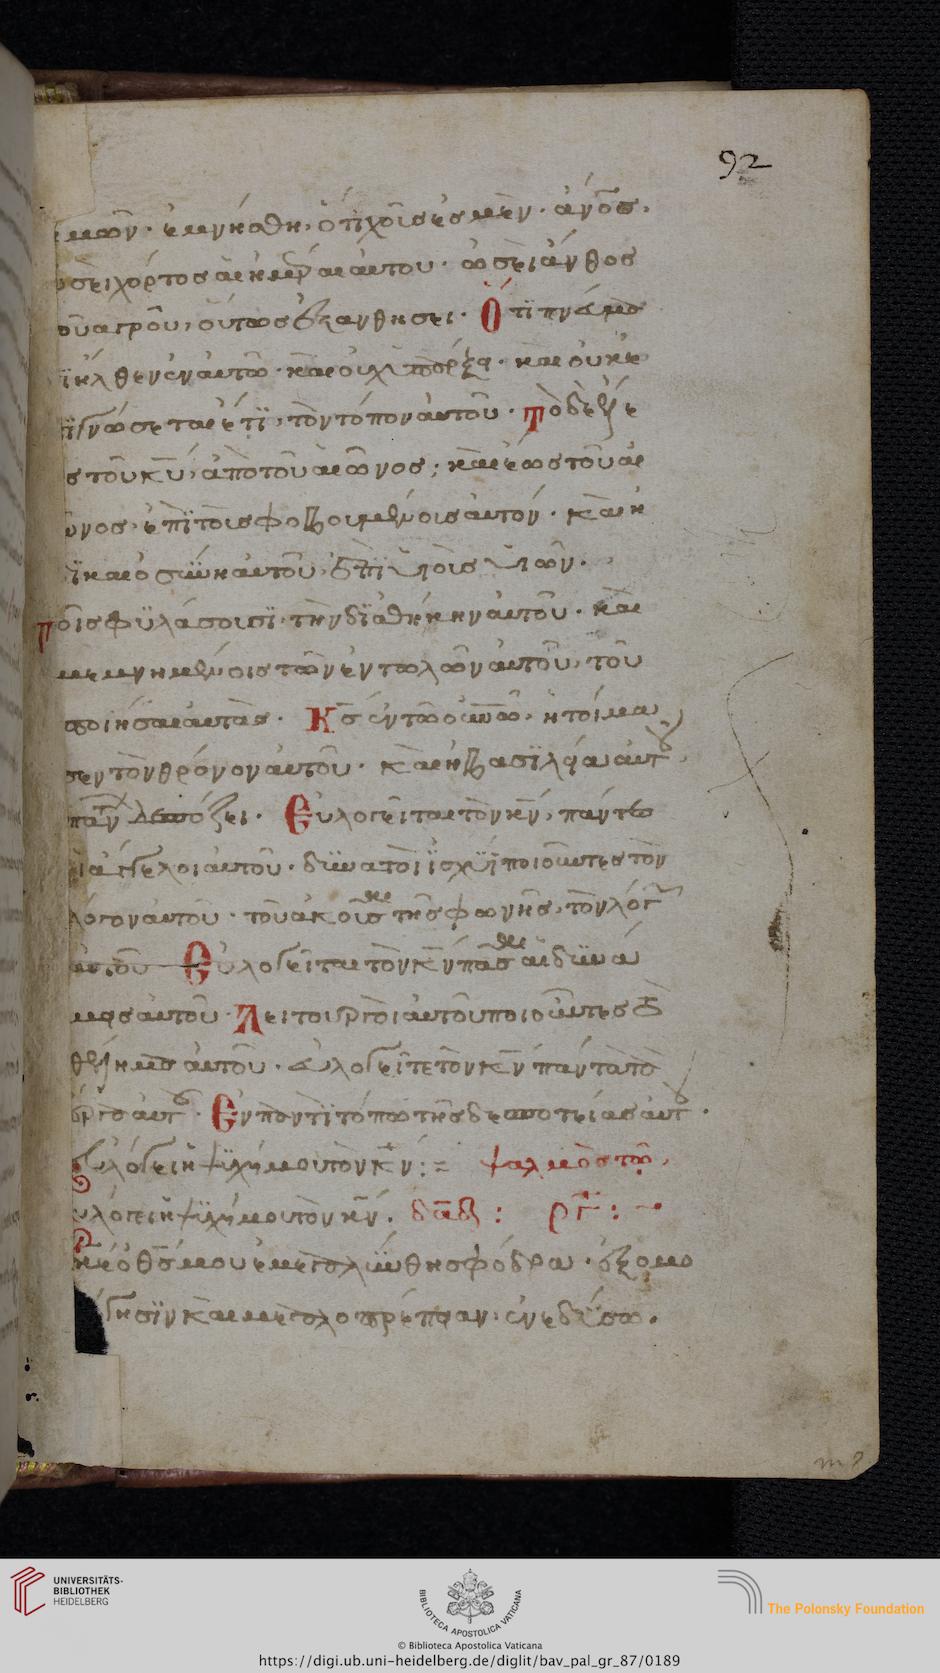 92
μῶν· ἐμνήσθη, ὅτι χοῦς ἐσμὲν· ἄνος,
ὡσεὶ χόρτος αἱ ἡμέραι αὐτοῦ· ὡσεὶ ἄνθος
οῦ ἀγροῦ, οὕτως ἐξανθήσει· Ὅτϊ πνεῦμα
ϊῆλθεν ἐν αὐτῶ· καὶ οὐχ ὑπάρξει· καὶ οὐκ ἐ
πϊγνώσεται ἔτϊ, τὸν τόπον αὐτοῦ· Τὸ δὲ ἔλε
ς τοῦ κυ, ἀπὸ τοῦ αἰῶνος; καὶ ἕως τοῦ αἰ
ῶνος, ἐπὶ τοὶς φοβουμένοις αὐτόν· καὶ ἡ
ϊκαιοσϋνη αὐτοῦ, ἐπϊ υἱοῖς υἱῶν·
Τοῖς φϋλάσουσϊ· τὴν δϊαθήκην αὐτοῦ· καὶ
μεμνημένοις τῶν ἐντωλῶν αὐτοῦ, τοῦ
ποιήσαι αὐτὰς· Κς ἐν τῶ οὐνῶ, ἡτοίμα
σεν τὸν θρόνον αὐτοῦ· καὶ ἡ βασϊλεία αὐτοῦ
πάντων δεσπόζει· Εὐλογεῖται τὸν κν, πάντες
οἱ ἄγγελοι αὐτοῦ· δϋνατοὶ ϊσχύϊ ποιοῦντες τὸν
λόγον αὐτοῦ· τοῦ ἀκοῦσαι τῆς φωνῆς, τὸν λόγων
αὐτοῦ Εὐλογεῖται τὸν κν πᾶσαι αἱ δϋνά
μεις αὐτοῦ· Λειτουργοὶ αὐτοῦ ποιοῦντες τὸ
θέλημα αὐτοῦ· εὐλογεῖτε τὸν κν πάντα τὰ
ἔργα αὐτοῦ· Ἐν παντὶ τόπω τῆς δεσποτείας αὐτοῦ·
εὐλόγει ἡ ψϋχή μου τὸν κν: = ψαλμὸς τῶ,
Εὐλόγει ἡ ψϋχή μου τὸν κν. δᾱδ: ργ:
Κε ὁ θς μου ἐμεγαλύνθης φόδρα· ἐξομο
λόγησϊν καὶ μεγαλοπρέπειαν, ἐνεδύσω.
UNIVERSITÄTS-
BIBLIOTHEK
HEIDELBERG
BIBLIOTECA APOSTOLICA VATICANA
The Polonsky Foundation
© Biblioteca Apostolica Vaticana
https://digi.ub.uni-heidelberg.de/diglit/bav_pal_gr_87/0189